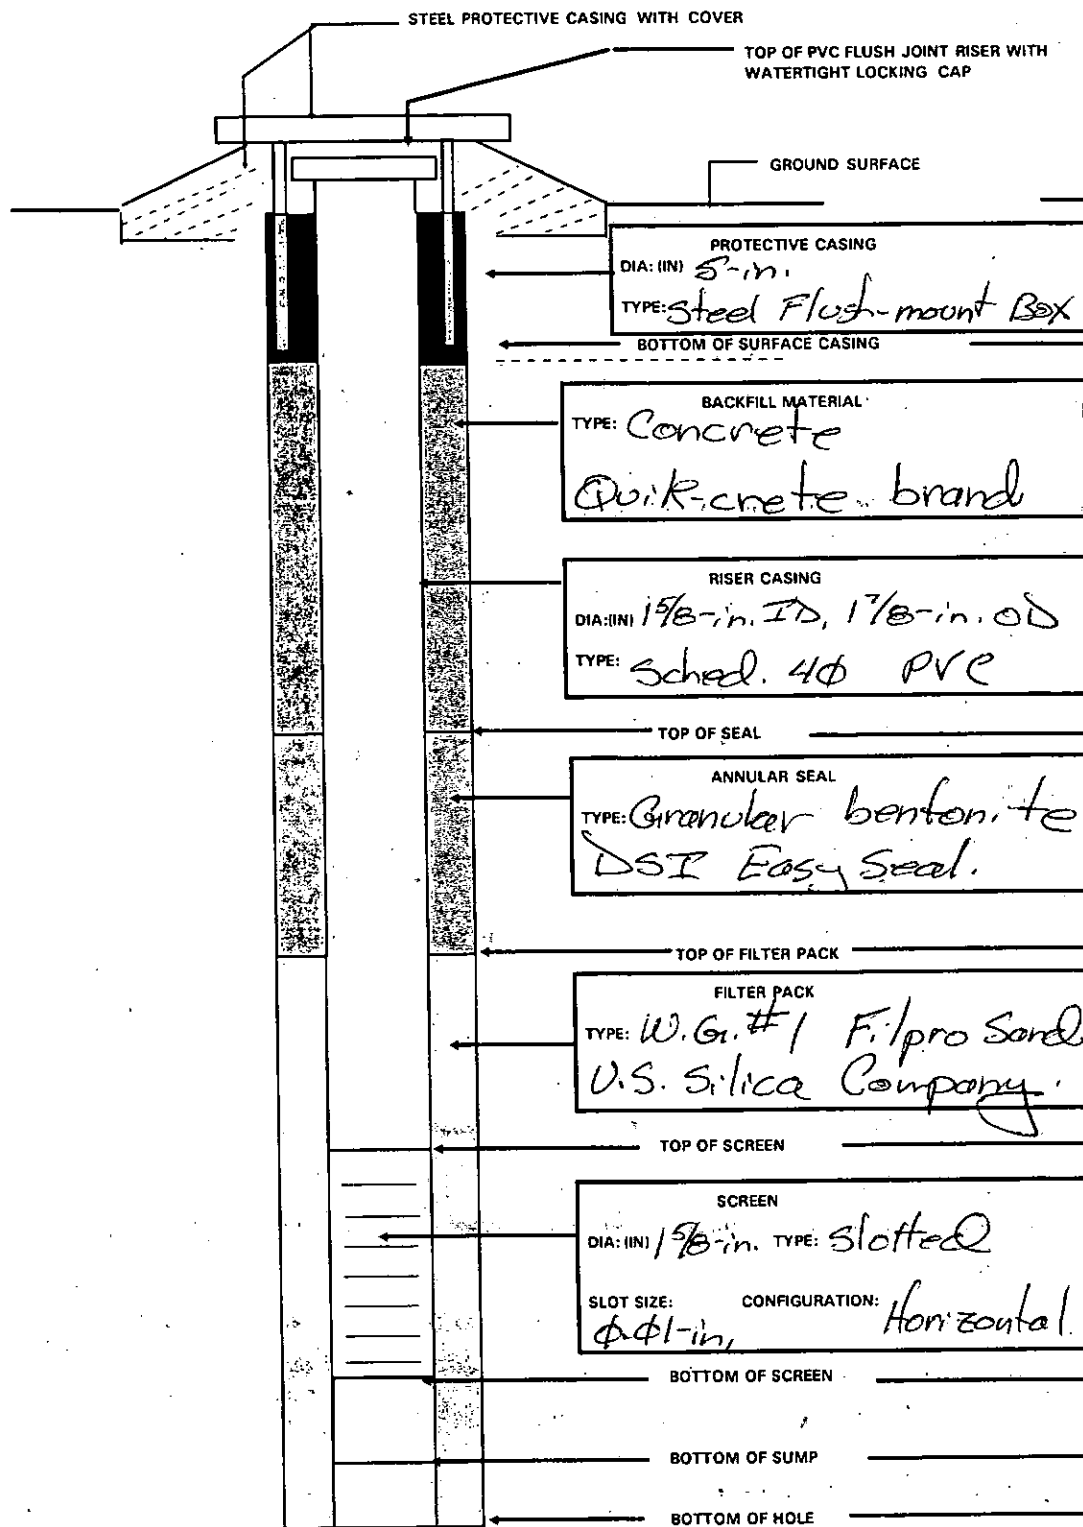 STEEL PROTECTIVE CASING WITH COVER
TOP OF PVC FLUSH JOINT RISER WITH
WATERTIGHT LOCKING CAP
GROUND SURFACE
PROTECTIVE CASING
DIA: (IN) 5-in.
TYPE: Steel Flush-mount Box
BOTTOM OF SURFACE CASING
BACKFILL MATERIAL
TYPE: Concrete
Quik-crete brand
RISER CASING
DIA:(IN) 1 5/8-in. ID, 1 7/8-in. OD
TYPE: Sched. 40 PVC
TOP OF SEAL
ANNULAR SEAL
TYPE: Granular bentonite
DSI Easy Seal.
TOP OF FILTER PACK
FILTER PACK
TYPE: W.G. #1 Filpro Sand
U.S. Silica Company.
TOP OF SCREEN
SCREEN
DIA: (IN) 1 5/8-in. TYPE: Slotted
SLOT SIZE: CONFIGURATION: Horizontal
0.01-in,
BOTTOM OF SCREEN
BOTTOM OF SUMP
BOTTOM OF HOLE